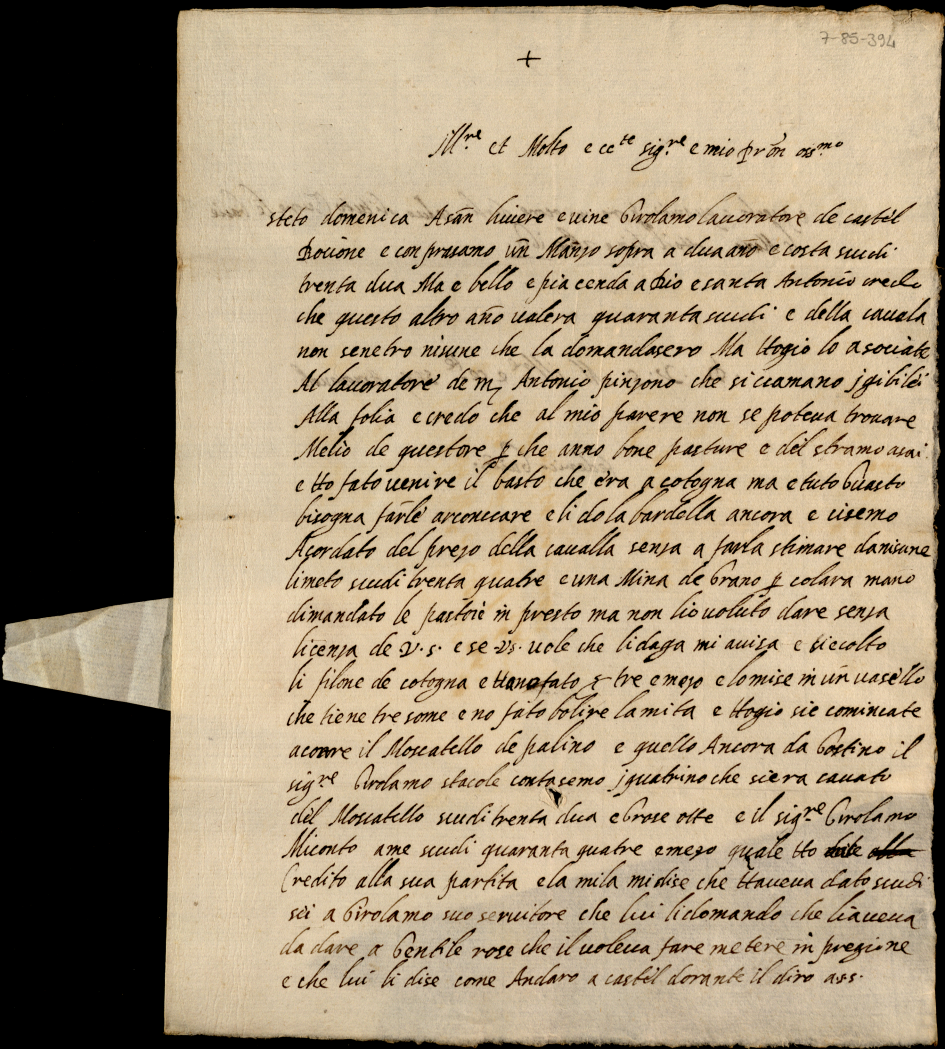 7-85-394
+
Ill.re et Molto ecc.te sig.re e mio pron oss.mo
steto domenica A san liviere e vine Girolamo lavoratore de castel
Bouone e conprasamo un Manzo sopra a dua año e costa scudi
trenta dua Ma e bello e piacenda a Dio e santa Antonio credo
che questo altro año valera quaranta scudi e della cavala
non se netro nisune che la domandasero Ma Hogio lo asociate
Al lavoratore de m. Antonio pinzono che si ccamano
Alla folia e credo che al mio parere non se poteva trovare
Melio de questore p che anno bone pasture e del stramo asai
e Ho fato venire il basto che era a cotogna ma e tuto Guasto
bisogna farle arconccare e li do la bardella ancora e visemo
Acordato del prezo della cavalla sensa a farla stimare da nisune
li meto scudi trenta quatre e una Mina de Grano p colara mano
dimandato le in presto ma non lio voluto dare sensa
licensa de V.S. e se VS. vole che li daga mi avisa e Si ecolto
li filone de cotogna e fato tre e mezo e lo mise in un vasello
che tiene tre some e no fato bolire la mita e Hogio si e comincate
acore il Moscatello de palino e quello Ancora da Gostino il
sig.re Girolamo stacole contasemo j quatrino che si era cavato
del Moscatello scudi trenta dua e Grose otte e il sig.re Girolamo
Miconto a me scudi quaranta quatre e mezo quale Ho
Credito alla sua partita e la mila mi dise che Haveva dato scudi
sei a Girolamo suo servitore che lui li domando che li aveva
da dare a Gentile rose che il voleva fare metere in pregione
e che lui li dise come Andaro a castel dorante il diro ass.